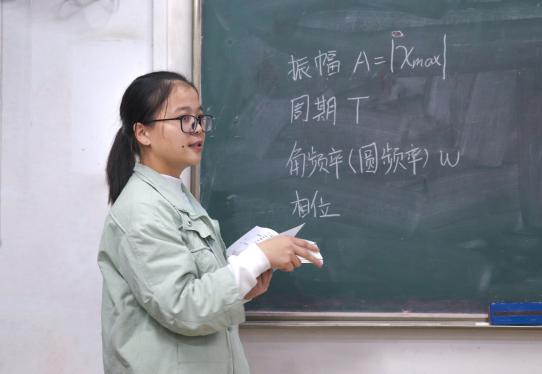 振幅 A=|Xmax|
周期 T
角频率(圆频率) w
相位